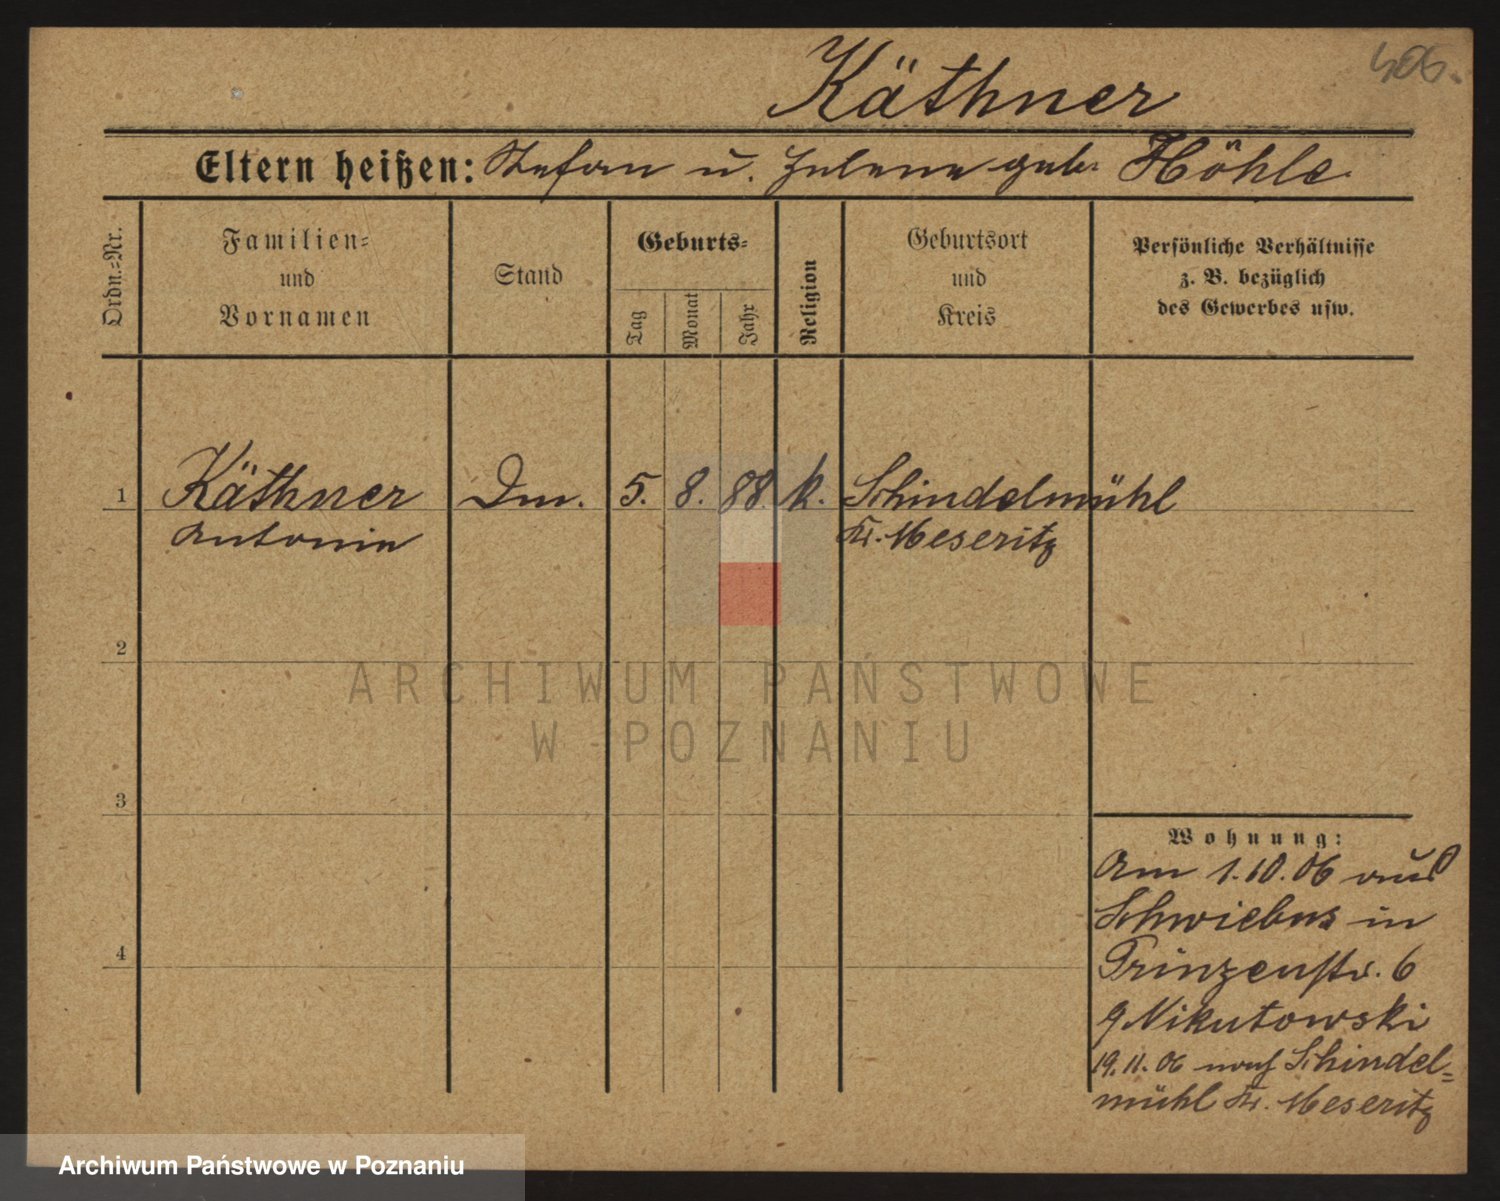 Käthner
506.
Eltern heißen: Stefan u. Helene geb. Höhle
Ordn.-Nr.
Familien-
und
Vornamen
Stand
Geburts-
Tag
Monat
Jahr
Religion
Geburtsort
und
Kreis
Persönliche Verhältnisse
z. B. bezüglich
des Gewerbes usw.
1 Käthner Dm. 5. 8. 88. k. Schindelmühl
Antonie Kr. Meseritz
2
ARCHIWUM PAŃSTWOWE
W POZNANIU
3
Wohnung:
Am 1.10.06 aus
Schwiebus in
4
Prinzenstr. 6
Nikutowski
19.11.06 nach Schindel=
mühl Kr. Meseritz
Archiwum Państwowe w Poznaniu